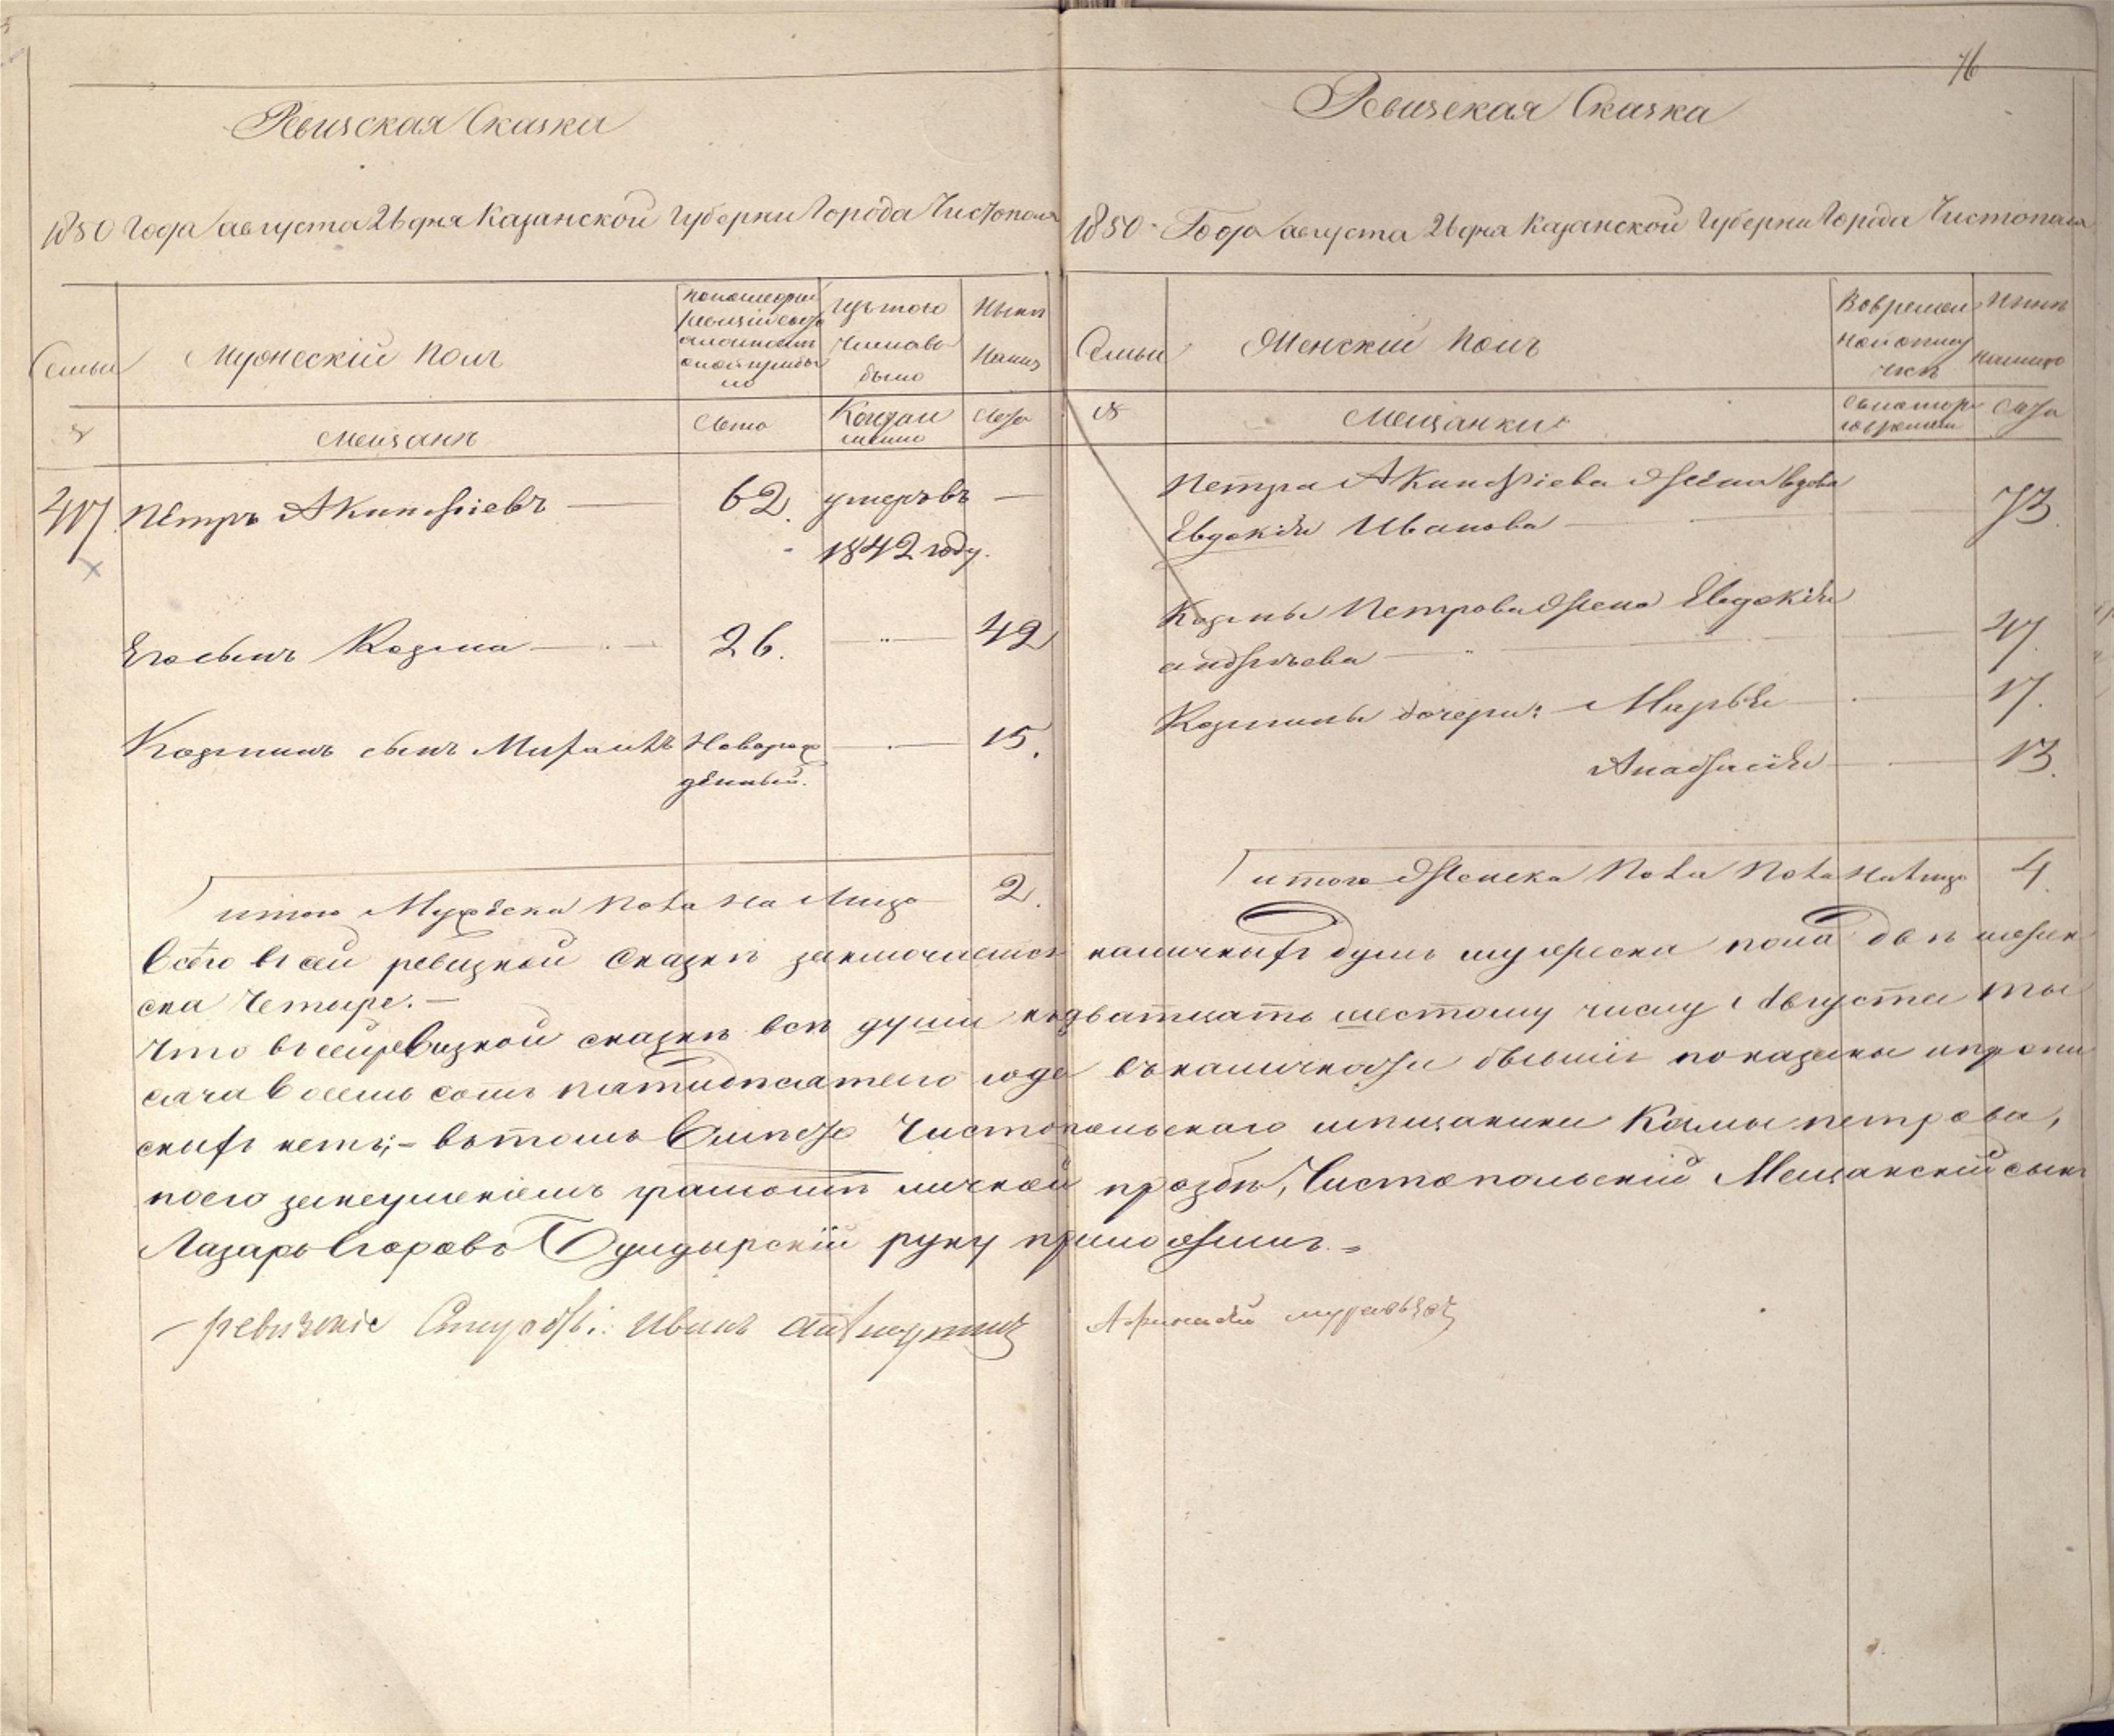 76
Ревизская Сказка
1850 Года августа 26 дня Казанской Губерни Города Чистополя
Семьи
Мужескій Полъ
Изъ того
числа
было
Ныне
№
мещане
Лета
Когда
Лета
417
Пётръ Акинфіевъ — 62. умеръ въ —
1842 году.
Его сынъ Козма — 26. — 42
Козминъ сынъ Михаилъ Новорож — 15.
дённый.
итого Мужеска Пола На Лицо 2.
Ревизская Сказка
1850 Года августа 26 дня Казанской Губерни Города Чистополя
Семьи
Женскій Полъ
Во время
Ныне
№
Мещанки
Лета
Петра Акинфіева жёна вдова
Евдокія Иванова — 73.
Козмы Петрова жена Евдокія
андреева — 47.
Козмины дочери: Марья — 17.
Анафасія — 13.
итого Женска Пола На Лицо 4.
Всего в сей ревизкой сказке заключается наличныхъ душъ мужеска пола две женъ
ска Четыре. —
Что в сей ревизкой сказке все души к дватцать шестому числу Августа ты
сяча восемь сотъ пятидесятого года въ наличности бывшіе показаны и пропи
сныхъ нетъ; — въ томъ вместо Чистопольскаго мещанина Камы петрова,
по его за неуменіемъ грамоте личной прозбе, Чистопольскій Мещанскій сынъ
Лазарь Егоровъ Бундырскій руку приложилъ. =
Иванъ